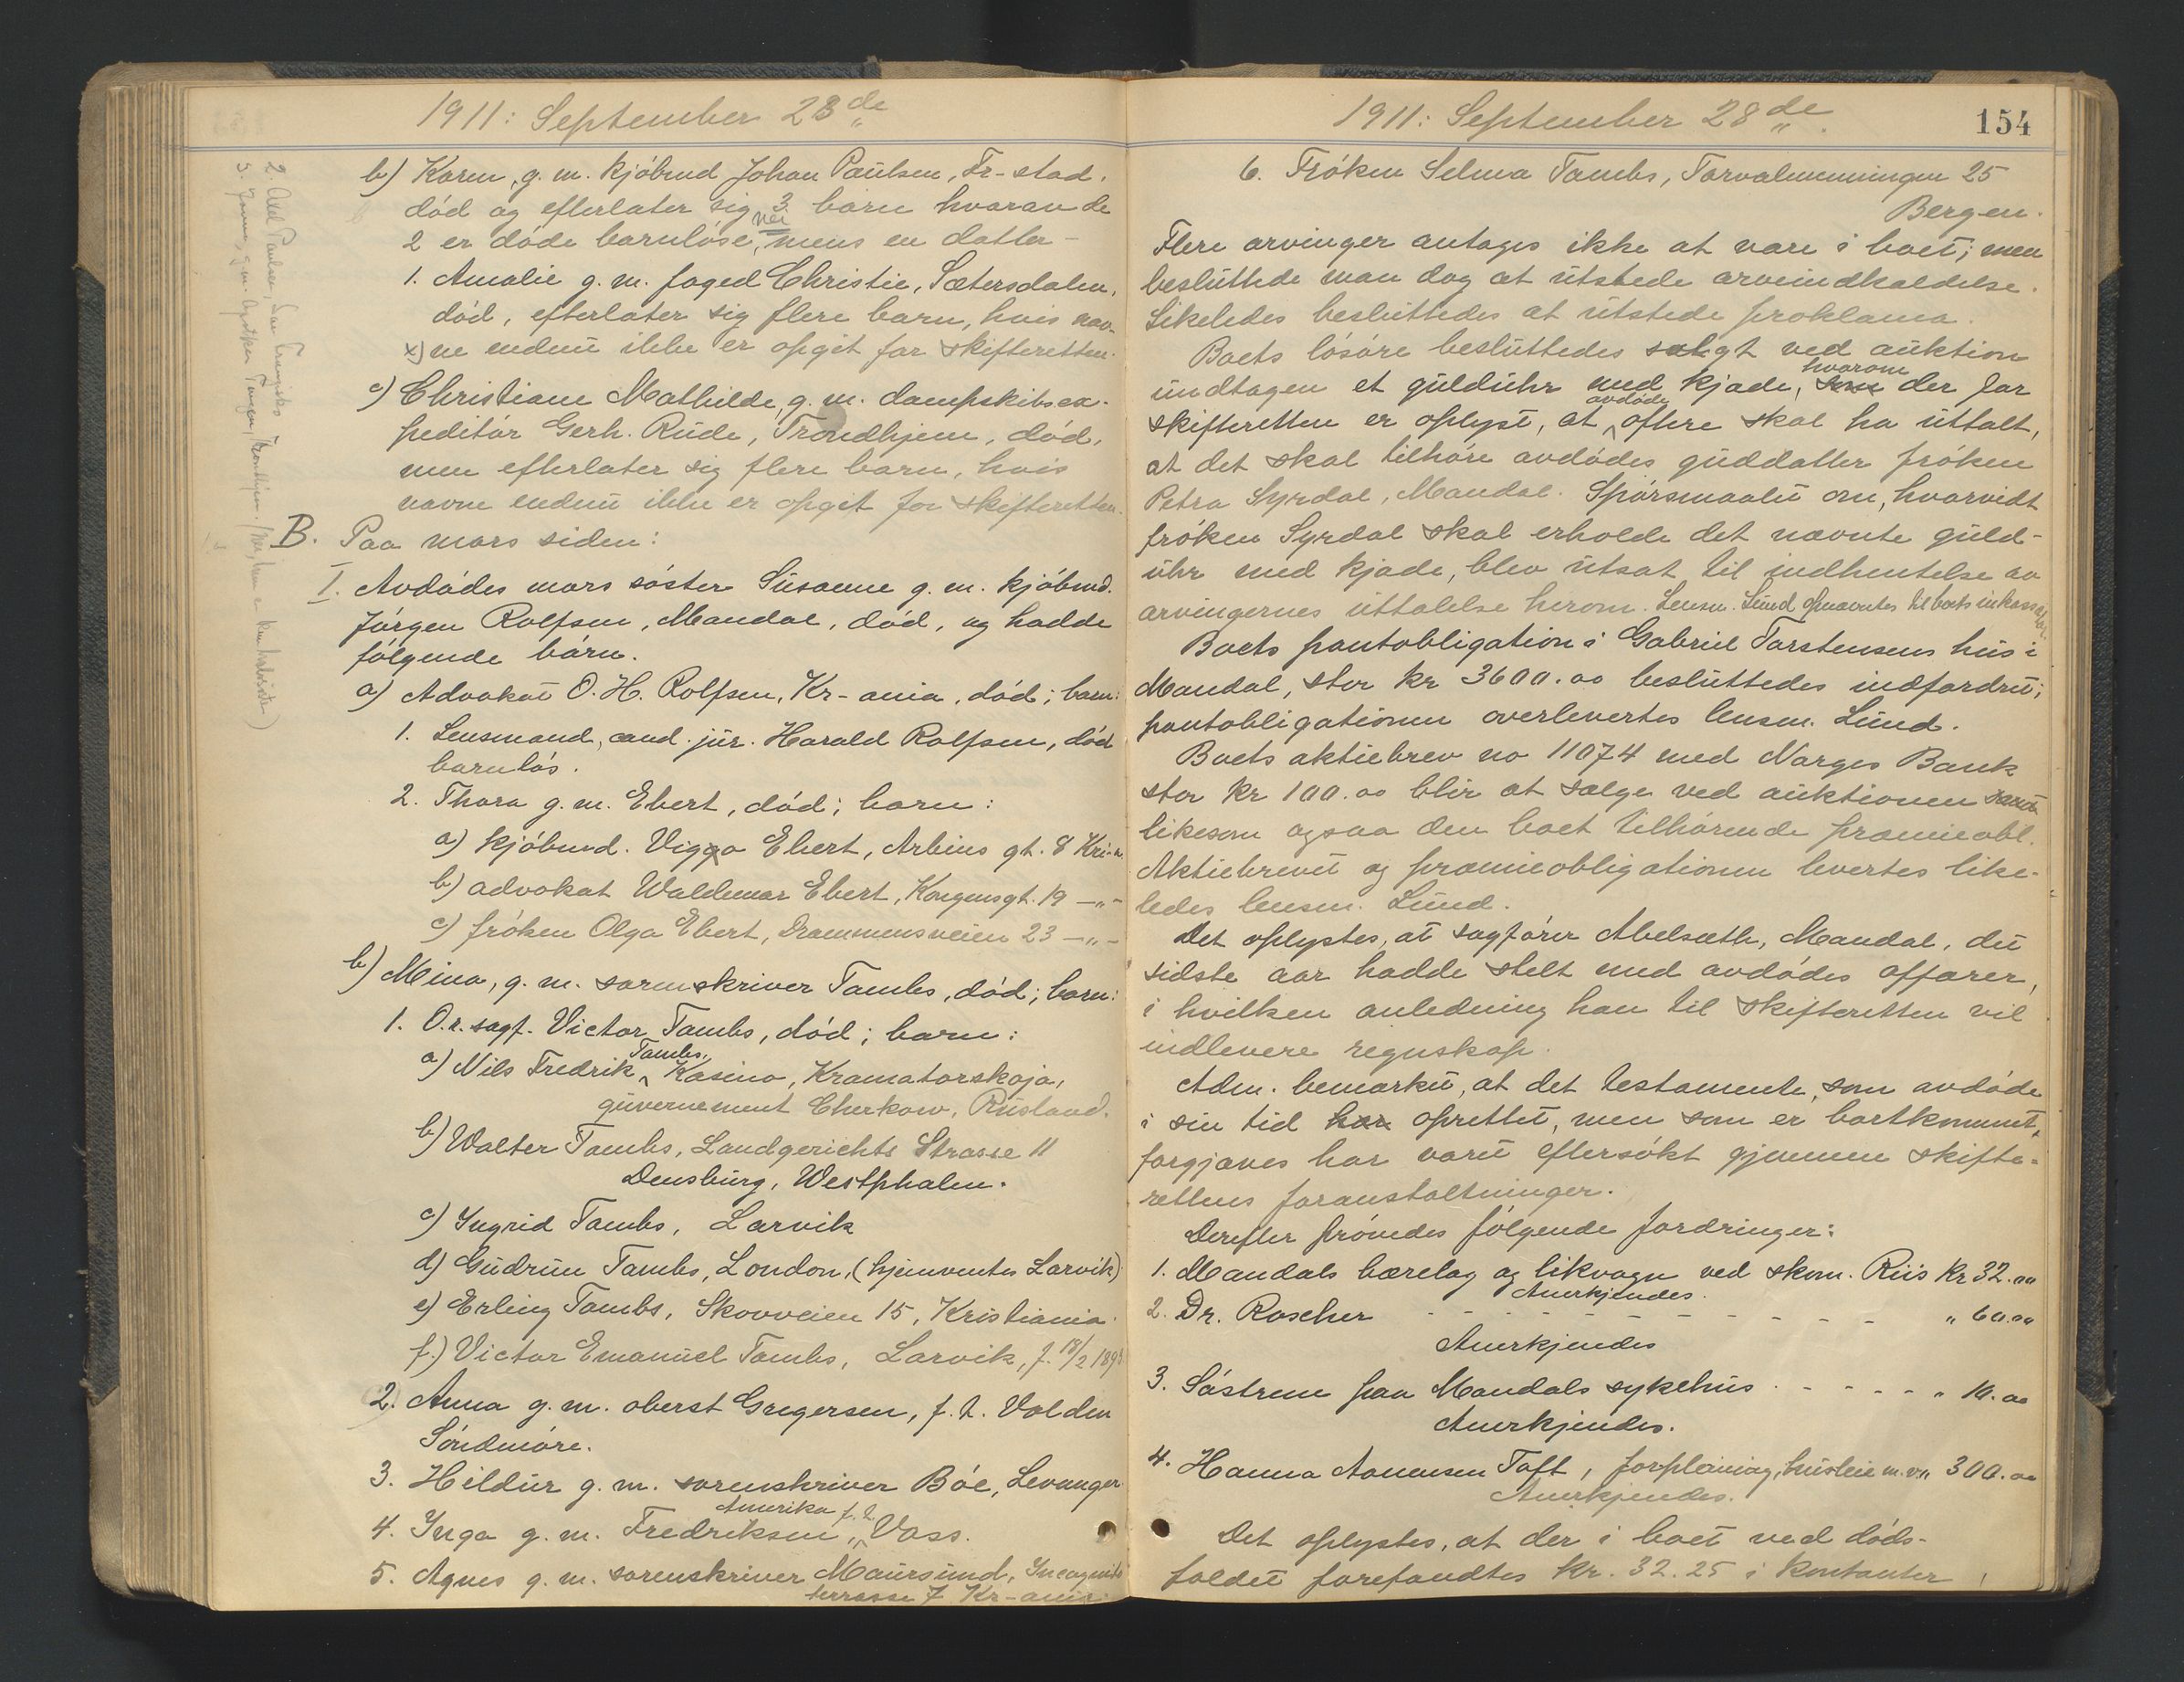 1911: September 28de
b) Karen, g. m. kjöbmd Johan Paulsen, Fr-stad,
död og efterlater sig 3 barn hvorav de
2 er döde barnlöse, nei mens en datter -
1. Amalie g. m. foged Christie, Sætersdalen,
död, efterlater sig flere barn, hvis nav-
x) ne endnu ikke er opgit for skifteretten.
c) Christiane Mathilde, g. m. dampskibsex-
peditör Gerh. Rude, Trondhjem, död,
men efterlater sig flere barn, hvis
navne endnu ikke er opgit for skifteretten.
B. Paa mors siden:
I. Avdödes mors söster Susanne g. m. kjöbmd.
Jörgen Rolfsen, Mandal, död, og hadde
fölgende börn.
a) Advokat O. H. Rolfsen, Kr-ania, död; barn:
1. Lensmand, cand. jur. Harald Rolfsen, död
barnlös.
2. Thora g. m. Ebert, död; barn:
a) kjöbmd. Viggo Ebert, Arbins gt. 8 Kr-a.
b) advokat Waldemar Ebert, Kongensgt. 19 -"-
c) fröken Olga Ebert, Drammensveien 23 -"-
b) Mina, g. m. sorenskriver Tambs, död; barn:
1. O.r. sagf. Victor Tambs, död; barn:
a) Nils Fredrik Tambs, Kasino, Kramatorskaja,
guvernement Cherkow, Rusland.
b) Walter Tambs, Landgerichts Strasse 11
Densburg, Westphalen.
c) Yngrid Tambs, Larvik
d) Gudrun Tambs, London, (hjemventes Larvik)
e) Erling Tambs, Skovveien 15, Kristiania.
f.) Victor Emanuel Tambs, Larvik, f. 18/2 189
2. Anna g. m. oberst Gregersen, f. t. Volden
Söndmöre.
3. Hildur g. m. sorenskriver Böe, Levanger.
4. Ynga g. m. Fredriksen, Amerika f. t. Voss.
5. Agnes g. m. sorenskriver Maursund, Incognito
terrasse 7 Kr-ania.
2. Paulsen, San Fransisko
3. g. m. Apotheker Trondhjem.
1911: September 28de
154
6. Fröken Selma Tambs, Torvalmenningen 25
Bergen.
Flere arvinger antages ikke at være i boet; men
besluttede man dog at utstede arveindkaldelse.
Likeledes besluttedes at utstede proklama.
Boets lösöre besluttedes solgt ved auktion
undtagen et gulduhr med kjæde, hvorom der for
skifteretten er oplyst, at avdöde oftere skal ha uttalt,
at det skal tilhöre avdödes guddatter fröken
Petra Syrdal, Mandal. Spörsmaalet om, hvorvidt
fröken Syrdal skal erholde det nævnte guld-
uhr med kjæde, blev utsat til indhentelse av
arvingernes uttalelse herom. Lensm. Lund opnævntes til boets inkassator.
Boets pantobligation i Gabriel Torstensens hus i
Mandal, stor kr 3600.00 besluttedes indfordret;
pantobligationen overlevertes lensm. Lund.
Boets aktiebrev no 11074 med Norges Bank
stor kr 100.00 blir at sælge ved auktionen
likesom ogsaa den boet tilhörende præmieobl.
Aktiebrevet og præmieobligationen levertes like-
ledes lensm. Lund.
Det oplystes, at sagförer Abelsæth, Mandal, det
sidste aar hadde stelt med avdödes affærer,
i hvilken anledning han til skifteretten vil
indlevere regnskap.
Adm. bemerket, at det testamente, som avdöde
i sin tid har oprettet, men som er bortkommet,
forgjæves har været eftersökt gjennem skifte-
rettens foranstaltninger.
Derefter prövedes fölgende fordringer:
1. Mandals bærelag og likvogn ved skom. Riis kr 32.00
Anerkjendes.
2. Dr. Roscher - - - - - - - - " 60.00
Anerkjendes
3. Söstrene paa Mandals sykehus - - - - - " 10.00
Anerkjendes.
4. Hanna Aanensen Toft, forpleining, husleie m.v. " 300.00
Anerkjendes.
Det oplystes, at der i boet ved döds-
faldet forefandtes kr. 32.25 i kontanter